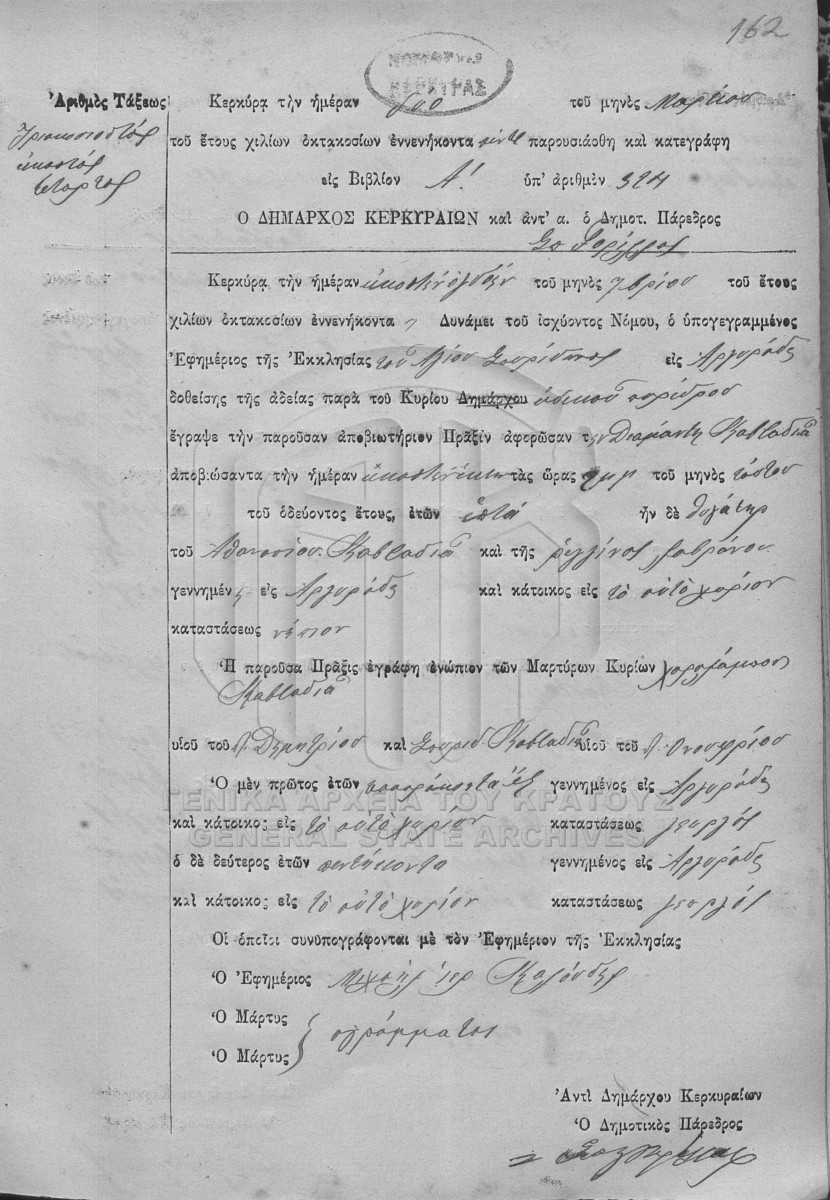 162
ΝΟΜΑΡΧΙΑ
ΚΕΡΚΥΡΑΣ
Ἀριθμὸς Τάξεως
Τριακοσιοστός
εἰκοστός
τέταρτος
Κερκύρᾳ τὴν ἡμέραν δύο τοῦ μηνὸς Μαρτίου
τοῦ ἔτους χιλίων ὀκτακοσίων ἐννενήκοντα πέντε παρουσιάσθη καὶ κατεγράφη
εἰς Βιβλίον Α! ὑπ' ἀριθμὸν 324
Ὁ ΔΗΜΑΡΧΟΣ ΚΕΡΚΥΡΑΙΩΝ καὶ ἀντ' α. ὁ Δημοτ. Πάρεδρος
Κερκύρᾳ τὴν ἡμέραν εἰκοστὴν ὀγδόην τοῦ μηνὸς 7βρίου τοῦ ἔτους
χιλίων ὀκτακοσίων ἐννενήκοντα Δυνάμει τοῦ ἰσχύοντος Νόμου, ὁ ὑπογεγραμμένος
Ἐφημέριος τῆς Ἐκκλησίας τοῦ Ἁγίου Σπυρίδωνος εἰς Ἀργυράδες
δοθείσης τῆς ἀδείας παρὰ τοῦ Κυρίου Δημάρχου εἰδικοῦ παρέδρου
ἔγραψε τὴν παροῦσαν ἀποβιωτήριον Πρᾶξιν ἀφορῶσαν τὴν Διαμάντω Καββαδιᾶ
ἀποβιώσαντα τὴν ἡμέραν εἰκοστὴν ἕκτην τὰς ὥρας πμμ τοῦ μηνὸς τούτου
τοῦ ὁδεύοντος ἔτους, ἐτῶν ἑπτά ἦν δὲ θυγάτηρ
τοῦ Ἀθανασίου Καββαδιᾶ καὶ τῆς Ρεγγίνας
γεννημένη εἰς Ἀργυράδες καὶ κάτοικος εἰς τὸ αὐτὸ χωρίον
καταστάσεως νήπιον
Ἡ παροῦσα Πρᾶξις ἐγράφη ἐνώπιον τῶν Μαρτύρων Κυρίων Χαραλάμπους
Καββαδιᾶ
υἱοῦ τοῦ π. Δημητρίου καὶ Σπυρίδ. Καββαδιᾶ υἱοῦ τοῦ π. Ὀνουφρίου
Ὁ μὲν πρῶτος ἐτῶν τεσσαράκοντα ἕξ γεννημένος εἰς Ἀργυράδες
καὶ κάτοικος εἰς τὸ αὐτὸ χωρίον καταστάσεως γεωργός
ὁ δὲ δεύτερος ἐτῶν πεντήκοντα γεννημένος εἰς Ἀργυράδες
καὶ κάτοικος εἰς τὸ αὐτὸ χωρίον καταστάσεως γεωργός
Οἱ ὁποῖοι συνυπογράφονται μὲ τὸν Ἐφημέριον τῆς Ἐκκλησίας
Ὁ Ἐφημέριος Μιχαὴλ ἱερ. Καλούδης
Ὁ Μάρτυς
ἀγράμματοι
Ὁ Μάρτυς
Ἀντὶ Δημάρχου Κερκυραίων
Ὁ Δημοτικὸς Πάρεδρος
ΓΕΝΙΚΑ ΑΡΧΕΙΑ ΤΟΥ ΚΡΑΤΟΥΣ
GENERAL STATE ARCHIVES